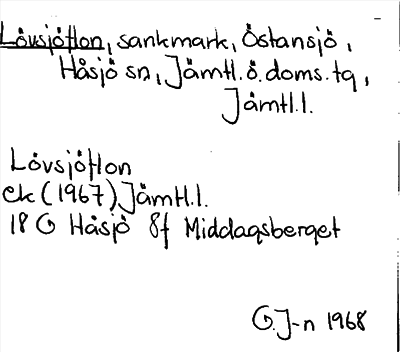 Lövsjöflon, sankmark, Östansjö,
Håsjö sn, Jämtl.ö.doms.tg,
Jämtl.l.
Lövsjöflon
ek (1967) Jämtl.l.
18 G Håsjö 8f Middagsberget
G.J-n 1968